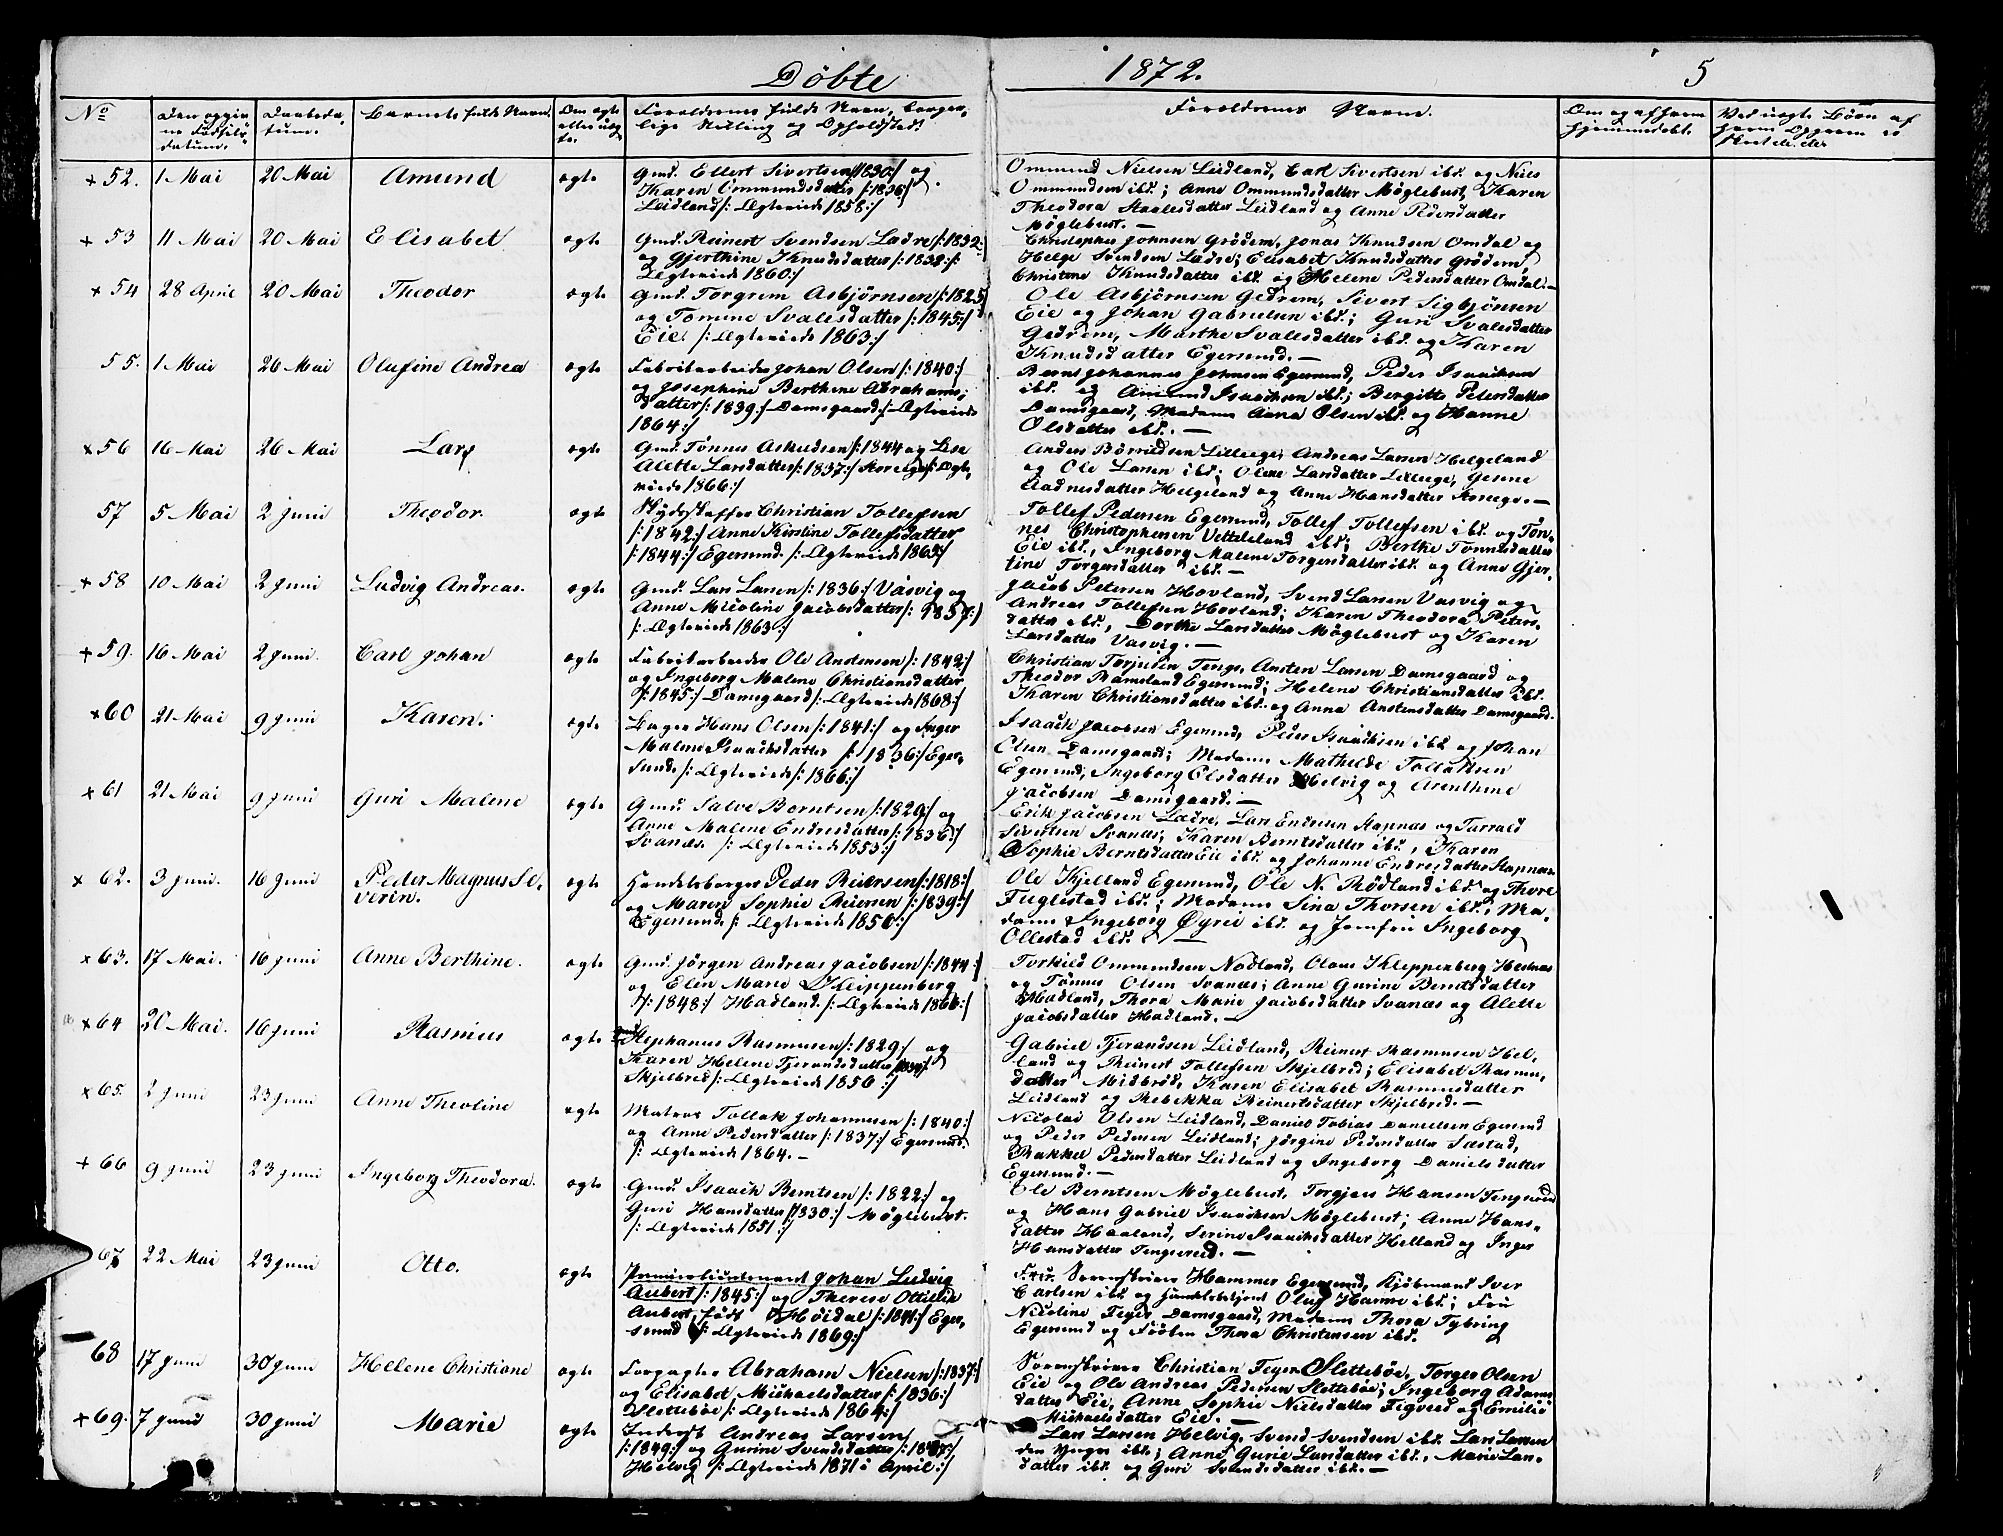 Döbte 1872. 5
No
Barnets fulde Navn.
Forældrenes fulde Navn, borger-
lige Stilling og Opholdsted.
Navne.
+ 52. 1 Mai 20 Mai Amund ægte Gmd. Ellert Sivertsen /:1830:/ og
Karen Ommundsdatter /:1836:/
Leidland /: Ægteviede 1858:/
Ommund Nielsen Leidland, Carl Sivertsen ibd. og Niels
Ommundsen ibd.; Anne Ommundsdatter Møglebust, Karen
Theodora Staalesdatter Leidland og Anne Pedersdatter
Møglebust. —
+ 53 11 Mai 20 Mai Elisabet ægte Gmd. Reinert Svendsen Ladre /:1832:/
og Gjerthine Knudsdatter /:1838:/
Ægteviede 1860:/
Christopher Johnsen Grödem, Jonas Knudsen Omdal og
Helge Svendsen Ladre; Elisabet Knudsdatter Grödem,
Christine Knudsdatter ibd. og Helene Pedersdatter Omdal. —
+ 54 28 April 20 Mai Theodor ægte Gmd. Torgrem Asbjörnsen /:1825
og Tomine Svalesdatter /:1845:/
Eie. /: Ægteviede 1863:/
Ole Asbjörnsen Gedrem, Sivert Sigbjönsen
Eie og Johan Gabrielsen ibd.; Guri Svalesdatter
Gedrem, Marthe Svalesdatter ibd. og Karen
Knudsdatter Egersund. —
55. 1 Mai 26 Mai Olufine Andrea ægte Fabrikarbeider Johan Olsen /:1840:/
og Josephine Berthine Abrahams-
datter /:1839:/ Damsgaard /: Ægteviede
1864:/
Johannes Johnsen Egersund, Peder Isaachsen
ibd. og Amund Isaachsen ibd.; Bergitte Petersdatter
Damsgaard, Madame Anna Olsen ibd. og Hanne
Olsdatter ibd. —
+ 56 16 Mai 26 Mai Lars ægte Gmd. Tönnes Askildsen /:1844 og Lise
Alette Larsdatter /:1837:/ Æogt-
viede 1866:/
Anders Lilleeige, Andreas Larsen Helgeland
og Ole Larsen ibd.; Olene Larsdatter Lilleeige, Gesine
Aadnesdatter Helgeland og Anne Hansdatter —
57 5 Mai 2 Juni Theodor ægte Christian Tollefsen
/:1842:/ Anne Kirstine Tollefsdatter
/:1844:/ Egersund. /: Ægteviede 1865:/
Tollef Pedersen Egersund, Tollef Tollefsen ibd. og Tön-
nes Christophersen Vetteland ibd.; Berthe Tönnesdatter
Eie ibd., Ingeborg Malene Torgersdatter ibd. og Anne Gjer-
tine Torgersdatter ibd. —
+ 58 10 Mai 2 Juni Ludvig Andreas. ægte Gmd. Lars Larsen /:1836:/ Vasvig og
Anne Nicoline Jacobsdatter /:1837:/
/: Ægteviede 1863:/
Jacob Petersen Hovland, Svend Larsen Vasvig og
Andreas Tollefsen Hovland; Karen Theodora Peters-
datter ibd., Dorthe Larsdatter Møglebust og Karen
Larsdatter Vasvig. —
+ 59. 16 Mai 2 Juni. Carl Johan ægte Fabrikarbeider Ole Anstensen /:1842:/
og Ingeborg Malene Christiansdatter
/:1845:/ Damsgaard /: Ægteviede 1868:/
Christian Torjusen Tengs, Ansten Larsen Damsgaard og
Theodor Ramsland Egersund; Helene Christiansdatter ibd.
Karen Christiansdatter ibd. og Anna Anstensdatter Damsgaard.
+ 60 21 Mai 9 Juni Karen. ægte Bager Hans Olsen /:1841:/ og Inger
Malene Isaachsdatter /:1836:/ Eger-
sund. /: Ægteviede 1866:/
Isaach Jacobsen Egersund, Peder Isaachsen ibd. og Johan
Olsen Damsgaard; Madame Mathilde Tollaksen
Egersund, Ingeborg Olsdatter Helvig og Arenthine
Jacobsen Damsgaard. —
+ 61 21 Mai 9 Juni Guri Malene ægte Gmd. Salve Berntsen /:1829:/ og
Anne Malene Endresdatter /:1836:/
Svanes. /: Ægteviede 1853:/
Erik Jacobsen Ladre, Lars Endresen Stapnæs og Tarrald
Sivertsen Svanes; Karen Berntsdatter ibd., Karen
Sophie Berntsdatter Eie ibd. og Johanne Endresdatter Stapnæs
+ 62. 3 Juni. 16 Juni Peder Magnus Se-
verin. ægte Handelsborger Peder Reiersen /:1818:/
og Maren Sophie Reiersen /:1839:/
Egersund. /: Ægteviede 1856:/
Ole Kjelland Egersund, Ole N. Rödland ibd. og Thore
Fuglestad ibd.; Madame Sina Thorsen ibd., Ma-
dame Ingeborg Øyrie ibd. og Jomfru Ingeborg
Ollestad ibd. —
+ 63. 17 Mai. 16 Juni Anne Berthine. ægte Gmd. Jörgen Andreas Jacobsen /:1844:/
og Elen Marie Kleppenberg
/:1848:/ Hadland. /: Ægteviede 1866:/
Torkild Ommundsen Nodland, Olaus Kleppenberg Hestnæs
og Tönnes Olsen Svanæs; Anne Gurine Berntsdatter
Hadland, Thora Marie Jacobsdatter Svanæs og Alette
Jacobsdatter Hadland. —
+ 64 20 Mai. 16 Juni Rasmus ægte Stephanus Rasmusen /:1829:/ og
Karen Helene Tjerandsdatter
Skjelbred /: Ægteviede 1856:/
Gabriel Tjerandsen Leidland, Reinert Rasmusen Hel-
land og Reinert Tollefsen Skjelbred; Elisabet Rasmus-
datter Midbröd, Karen Elisabet Rasmusdatter
Leidland og Rebekka Reinertsdatter Skjelbred. —
+ 65. 2 Juni 23 Juni Anne Theoline ægte Matros Tollak Johannesen /:1840:/
og Anne Pedersdatter /:1837:/ Egersund
/: Ægteviede 1864. —
Nicolai Olsen Leidland, Daniel Tobias Danielsen Egersund
og Peder Pedersen Leidland; Jörgine Pedersdatter Sæstad,
Rakkel Pedersdatter Leidland og Ingeborg Danielsdatter
Egersund. —
+ 66 9 Juni 23 Juni Ingeborg Theodora. ægte Gmd. Isaach Berntsen /:1822:/ og
Guri Hansdatter /:1830:/ Møglebust.
/: Ægteviede 1851:/
Ole Berntsen Møglebust, Torgjers Hansen Tengsreid
og Hans Gabriel Isaachsen Møglebust; Anne Hans-
datter Haaland, Serine Isaachsdatter Helland og Inger
Hansdatter Tengsreid. —
67 22 Mai 23 Juni Otto. ægte Premierlieutenant Johan Ludvig
Aubert /:1845:/ og Therese Ottillie
Aubert, födt Høidal /:1841:/ Eger-
sund /: Ægteviede 1869:/
Sorenskriver Hammer Egersund, Kjöbmand Iver
Carlsen ibd. og Handelsbetjent Oluf Hanne ibd.; Fru
Nicoline Feyer Damsgaard, Madame Thora Tybring
Egersund og Fröken Thora Christensen ibd.
68 17 Juni 30 Juni Helene Christiane ægte Forpagter Abraham Nielsen /:1837:/
og Elisabet Michaelsdatter /:1836:/
Slettebøe /: Ægteviede 1864:/
Sorenskriver Christian Feyer Slettebøe, Torger Olsen
Eie og Ole Andreas Pedersen Slettebøe; Ingeborg Adams
datter Eie, Anne Sophie Nielsdatter Tigvred og Emilie
Michaelsdatter Eie. —
+ 69. 7 Juni 30 Juni Marie ægte Inderst Andreas Larsen
/:1849:/ og Gurine Svendsdatter /:1847:/
Helvig /: Ægteviede 1871 i April:/
Lars Larsen Helvig, Svend Svendsen ibd. Lars Larsen
den Yngre ibd.; Anne Gurie Larsdatter ibd., Marie Lars-
datter ibd. og Guri Svendsdatter ibd. —